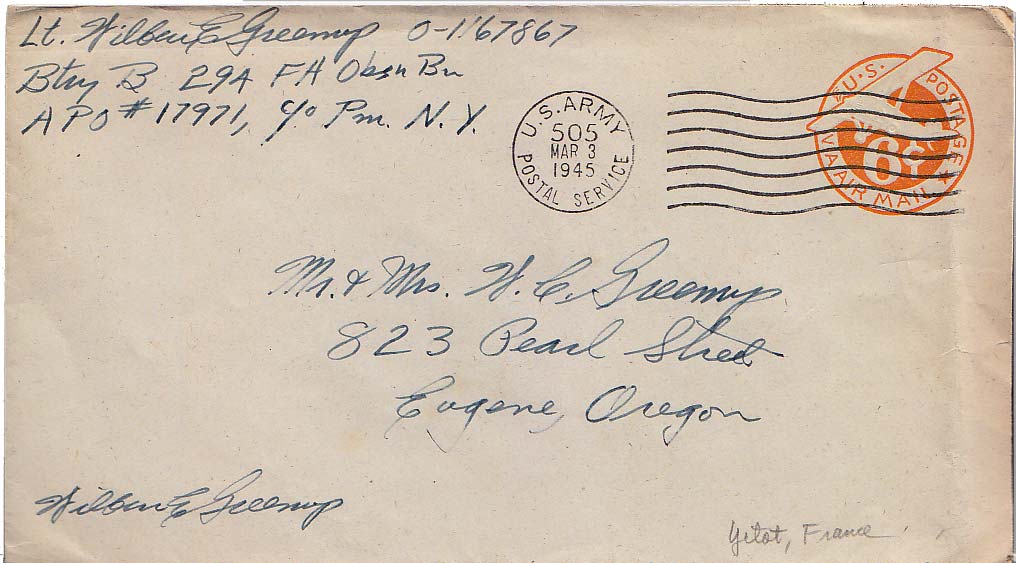 Lt. Wilber E Greenup O-1167867
Btry B 294 FA Obsn Bn
APO # 17971, c/o Pm. N.Y.
U.S. ARMY
505
MAR 3
1945
POSTAL SERVICE
U.S. POSTAGE
6¢
VIA AIR MAIL
Mr. & Mrs. W. C. Greenup
823 Pearl Street
Eugene, Oregon
Wilber E Greenup
Yetot, France